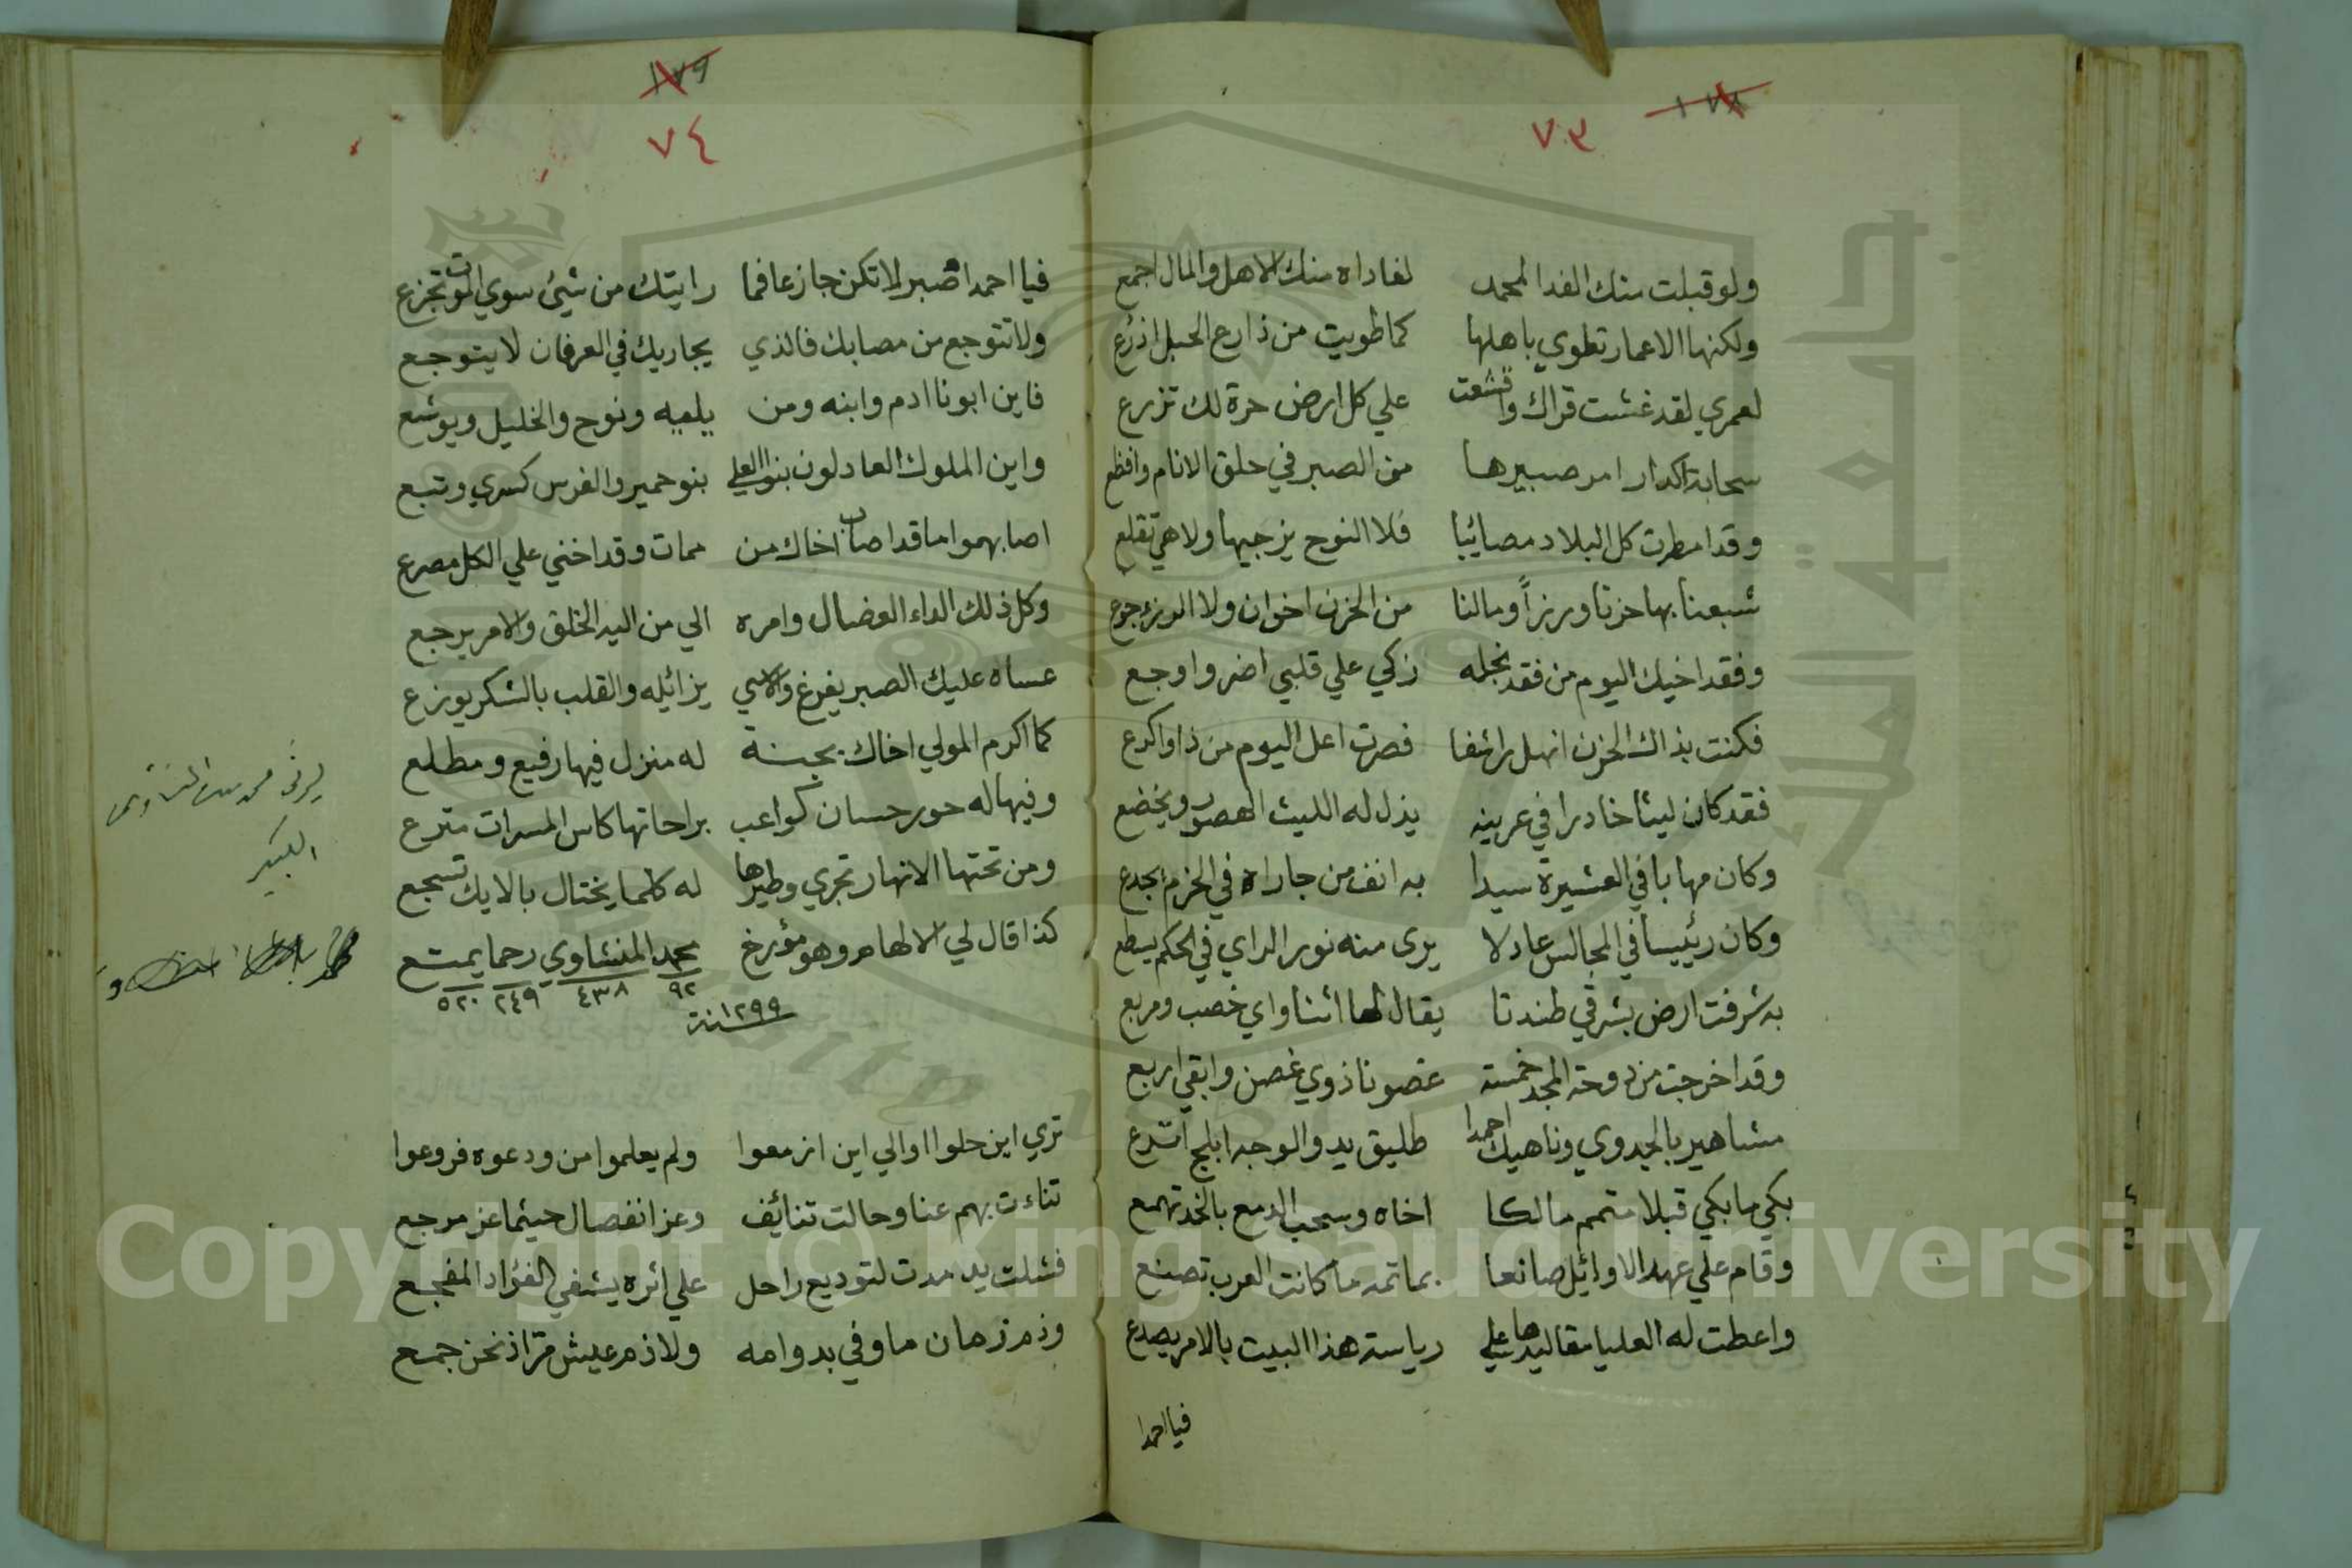 ١٧٨
٧٣
ولو قبلت منك الفدا لمحمد لفاداه منك الاهل والمال اجمع
ولكنها الاعمار تطوي باهلها كما طويت من ذارع الحبل اذرع
لعمري لقد غشت قراك واقشعت علي كل ارض حرة لك تزرع
سحابة اكدار امر صبيرها من الصبر في حلق الانام وافظع
وقد امطرت كل البلاد مصائبا فلا النوح يزجيها ولا هي تقلع
شبعنا بها حزنا ورزأ ومالنا من الحزن اخوان ولا الرزء جوع
وفقد اخيك اليوم من فقد نجله زكي علي قلبي اضر واوجع
فكنت بذاك الحزن انهل راشفا فصرت اعل اليوم من ذا واكرع
فقد كان ليثا خادرا في عرينه يذل له الليث الهصور ويخضع
وكان مهابا في العشيرة سيدا به انف من جاراه في الحزم يجدع
وكان رئيسا في المجالس عادلا يرى منه نور الراي في الحكم يسطع
به شرفت ارض بشرقي طندتا يقال لها اشناواي خصب ومربع
وقد اخرجت من دوحة المجد خمسة غصونا ذوي غصن وابقي اربع
مشاهير بالجدوي وناهيك احمدا طليق يد والوجه ابلج اتدع
بكي ما بكي قبلا متمم مالكا اخاه وسحب الدمع بالخد تهمع
وقام علي عهد الاوائل صانعا بماتمه ما كانت العرب تصنع
واعطت له العليا مقاليدها علي رياسة هذا البيت بالامر يصدع
فيا احمدا
١٧٩
٧٤
فيا احمدا صبرا لا تكن جازعا فما رايتك من شيئ سوي الموت تجزع
ولا تتوجع من مصابك فالذي يجاريك في العرفان لا يتوجع
فاين ابونا ادم وابنه ومن يليه ونوح والخليل ويوشع
واين الملوك العادلون بنوا العلي بنو حمير والفرس كسري وتبع
اصابهموا ما قد اصاب اخاك من ممات وقد اخني علي الكل مصرع
وكل ذلك الداء العضال وامره الي من اليه الخلق والامر يرجع
عساه عليك الصبر يفرغ والاسي يزائيله والقلب بالشكر يوزع
كما اكرم المولي اخاك بجنة له منزل فيها رفيع ومطلع
وفيها له حور حسان كواعب براحاتها كاس المسرات مترع
ومن تحتها الانهار تجري وطيرها له كلما يختال بالايك تسجع
كذا قال لي الالهام وهو مؤرخ محمد المنشاوي رحما يمتع
٩٢ ٤٣٨ ٢٤٩ ٥٢٠
سنة ١٢٩٩
الكبير
تري اين حلوا اوالي اين ازمعوا ولم يعلموا من ودعوه فروعوا
تناءت بهم عنا وحالت تنائف وعز انفصال حيثما عز مرجع
فشلت يد مدت لتوديع راحل علي اثره يشفي الفؤاد المفجع
وذم زمان ما وفي بدوامه ولا ذم عيش مر اذ نحن جمع
جامعة الملك سعود
Copyright © King Saud University